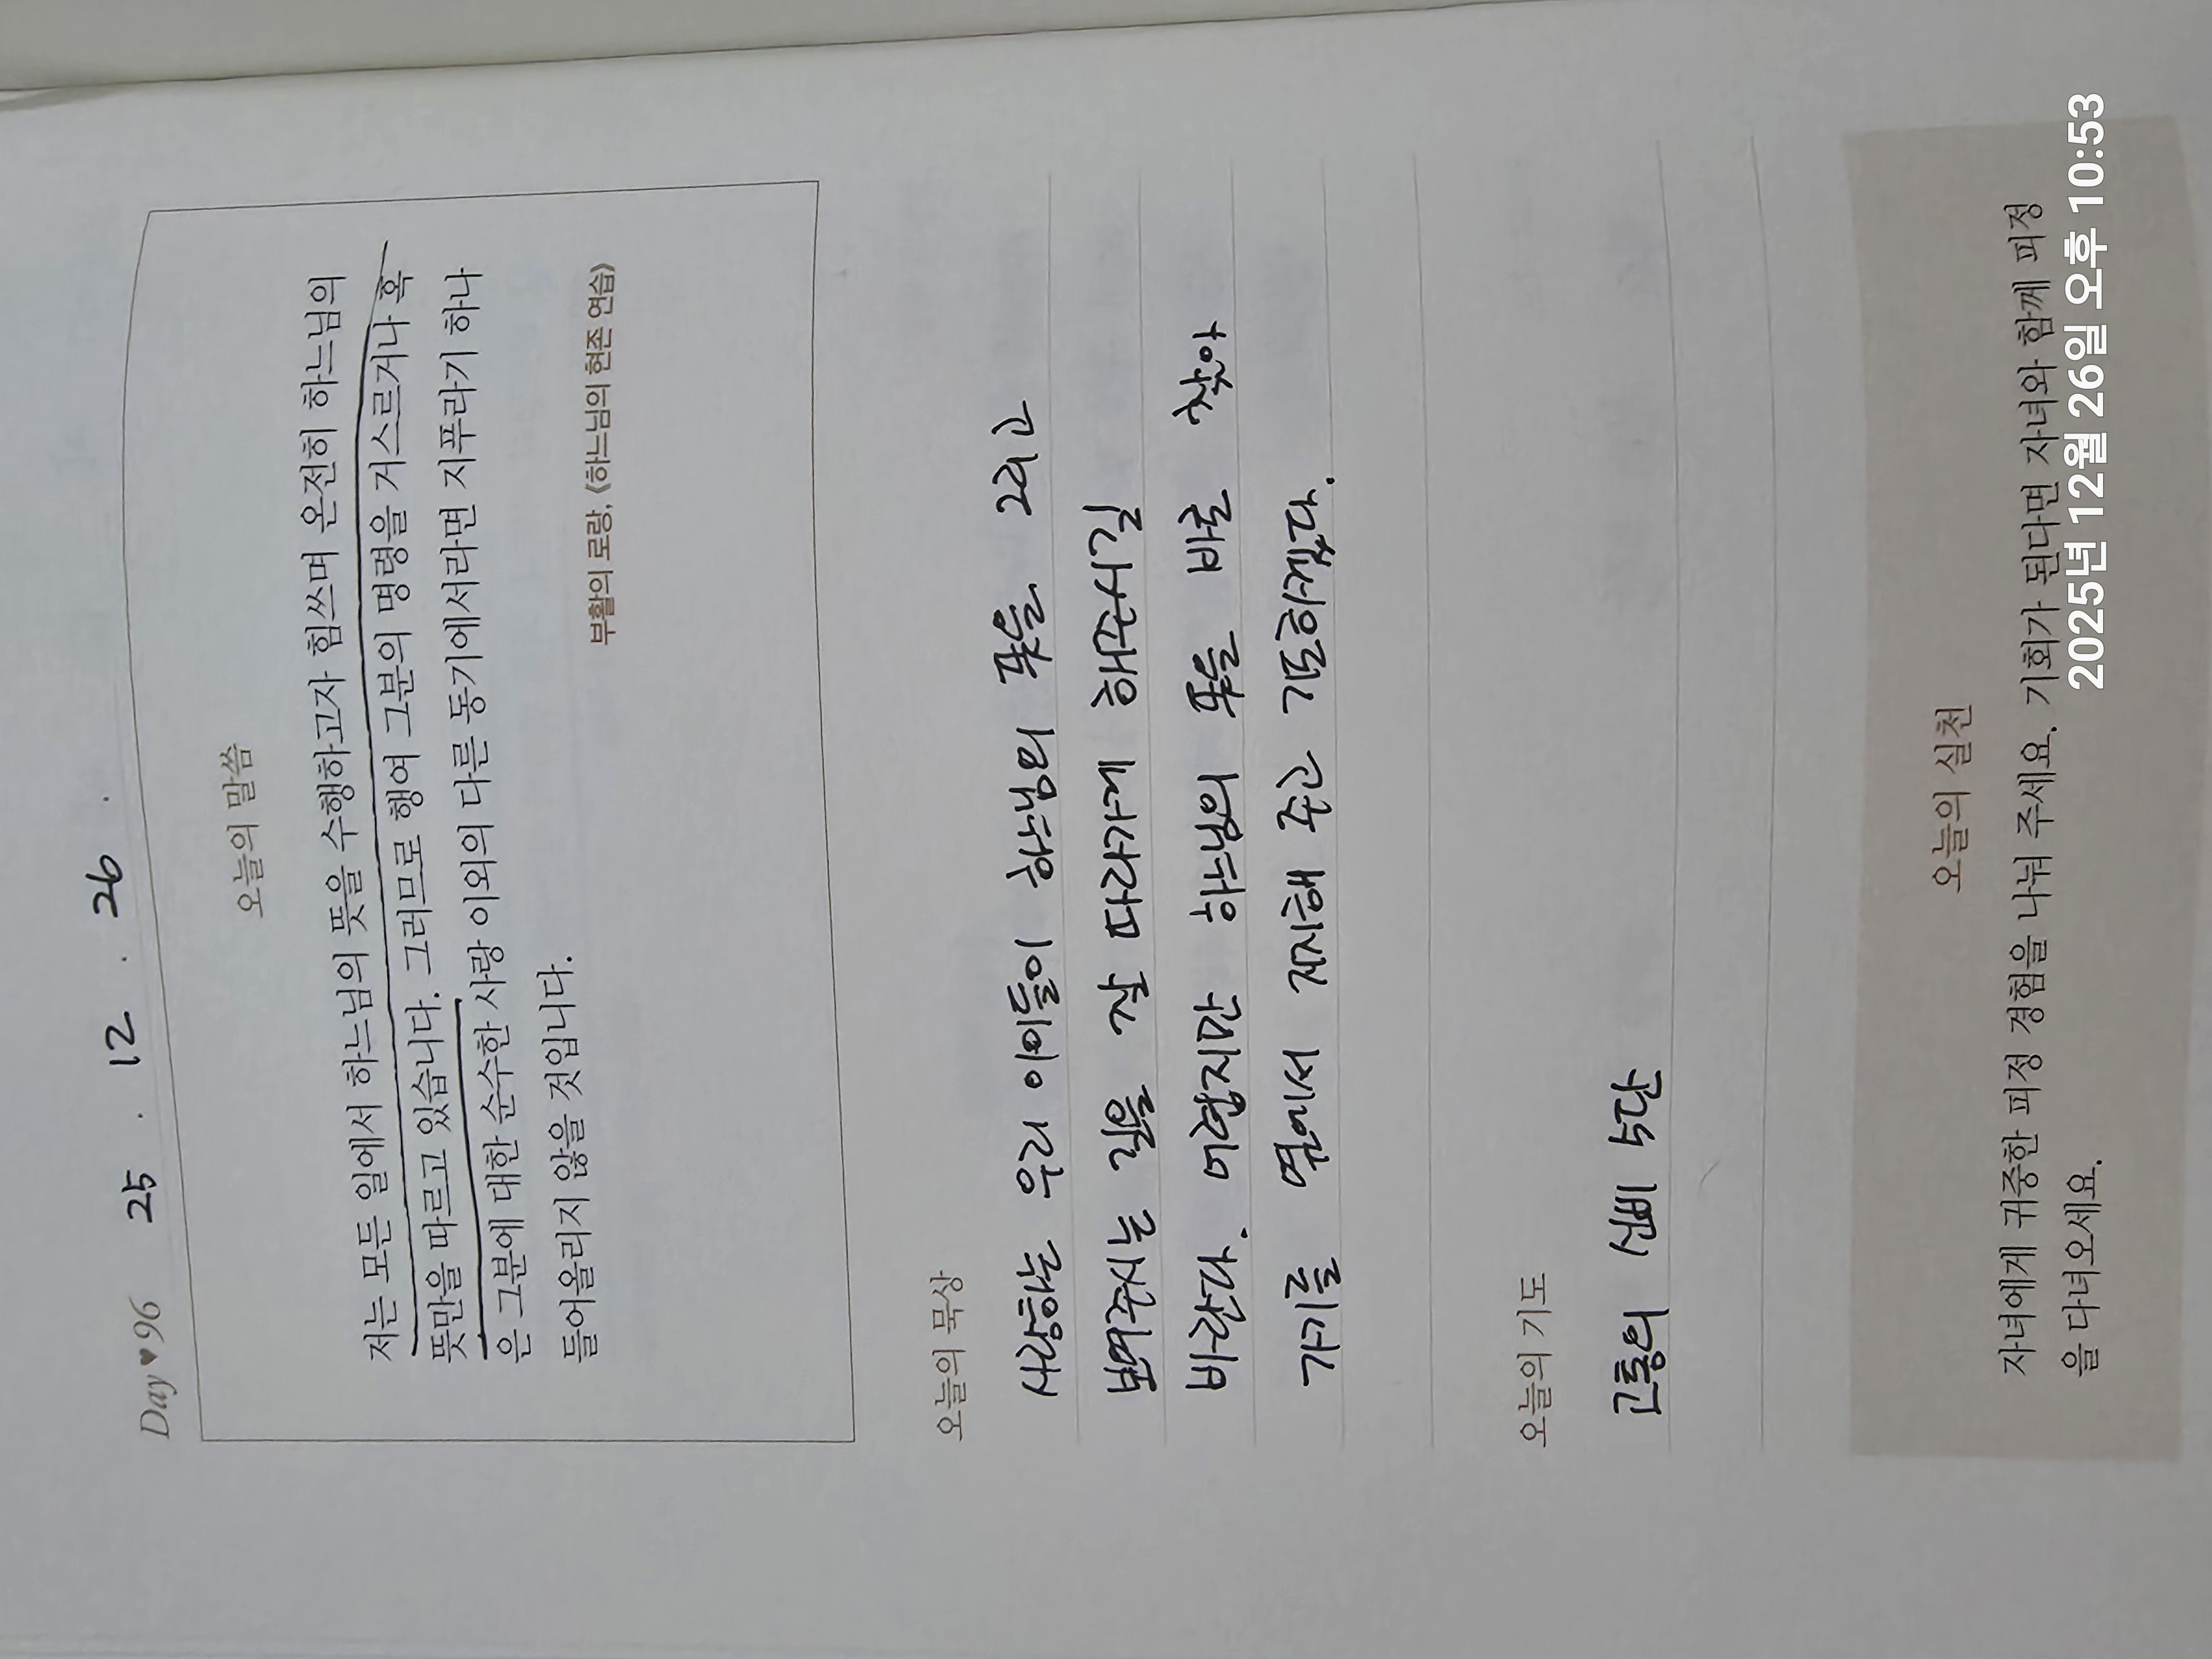 Day♥96 25 . 12 . 26 .
오늘의 말씀
저는 모든 일에서 하느님의 뜻을 수행하고자 힘쓰며 온전히 하느님의
뜻만을 따르고 있습니다. 그러므로 행여 그분의 명령을 거스르거나 혹
은 그분에 대한 순수한 사랑 이외의 다른 동기에서라면 지푸라기 하나
들어올리지 않을 것입니다.
부활의 로랑, 《하느님의 현존 연습》
오늘의 묵상
사랑하는 우리 아이들이 하느님의 뜻을 그리고
법며주시는 일을 잘 따라가게 해주시길
바란다. 미령지만 하느님의 뜻을 바로 찾아
가기를 옆에서 지해 주고 기도하겠다.
오늘의 기도
고통의 신비 5단
오늘의 실천
자녀에게 귀중한 피정 경험을 나눠 주세요. 기회가 된다면 자녀와 함께 피정
을 다녀오세요.
2025년 12월 26일 오후 10:53